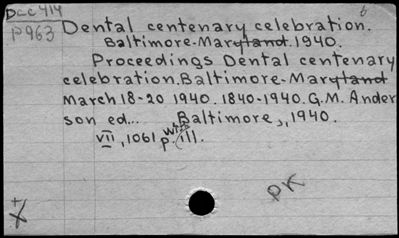 DCC 414
P963
6
Dental centenary celebration.
Baltimore-Maryland. 1940.
Proceedings Dental centenary
celebration. Baltimore-Maryland
March 18-20 1940. 1840-1940. G.M. Ander
son ed... Baltimore, 1940.
VII, 1061 p. ill.
PK